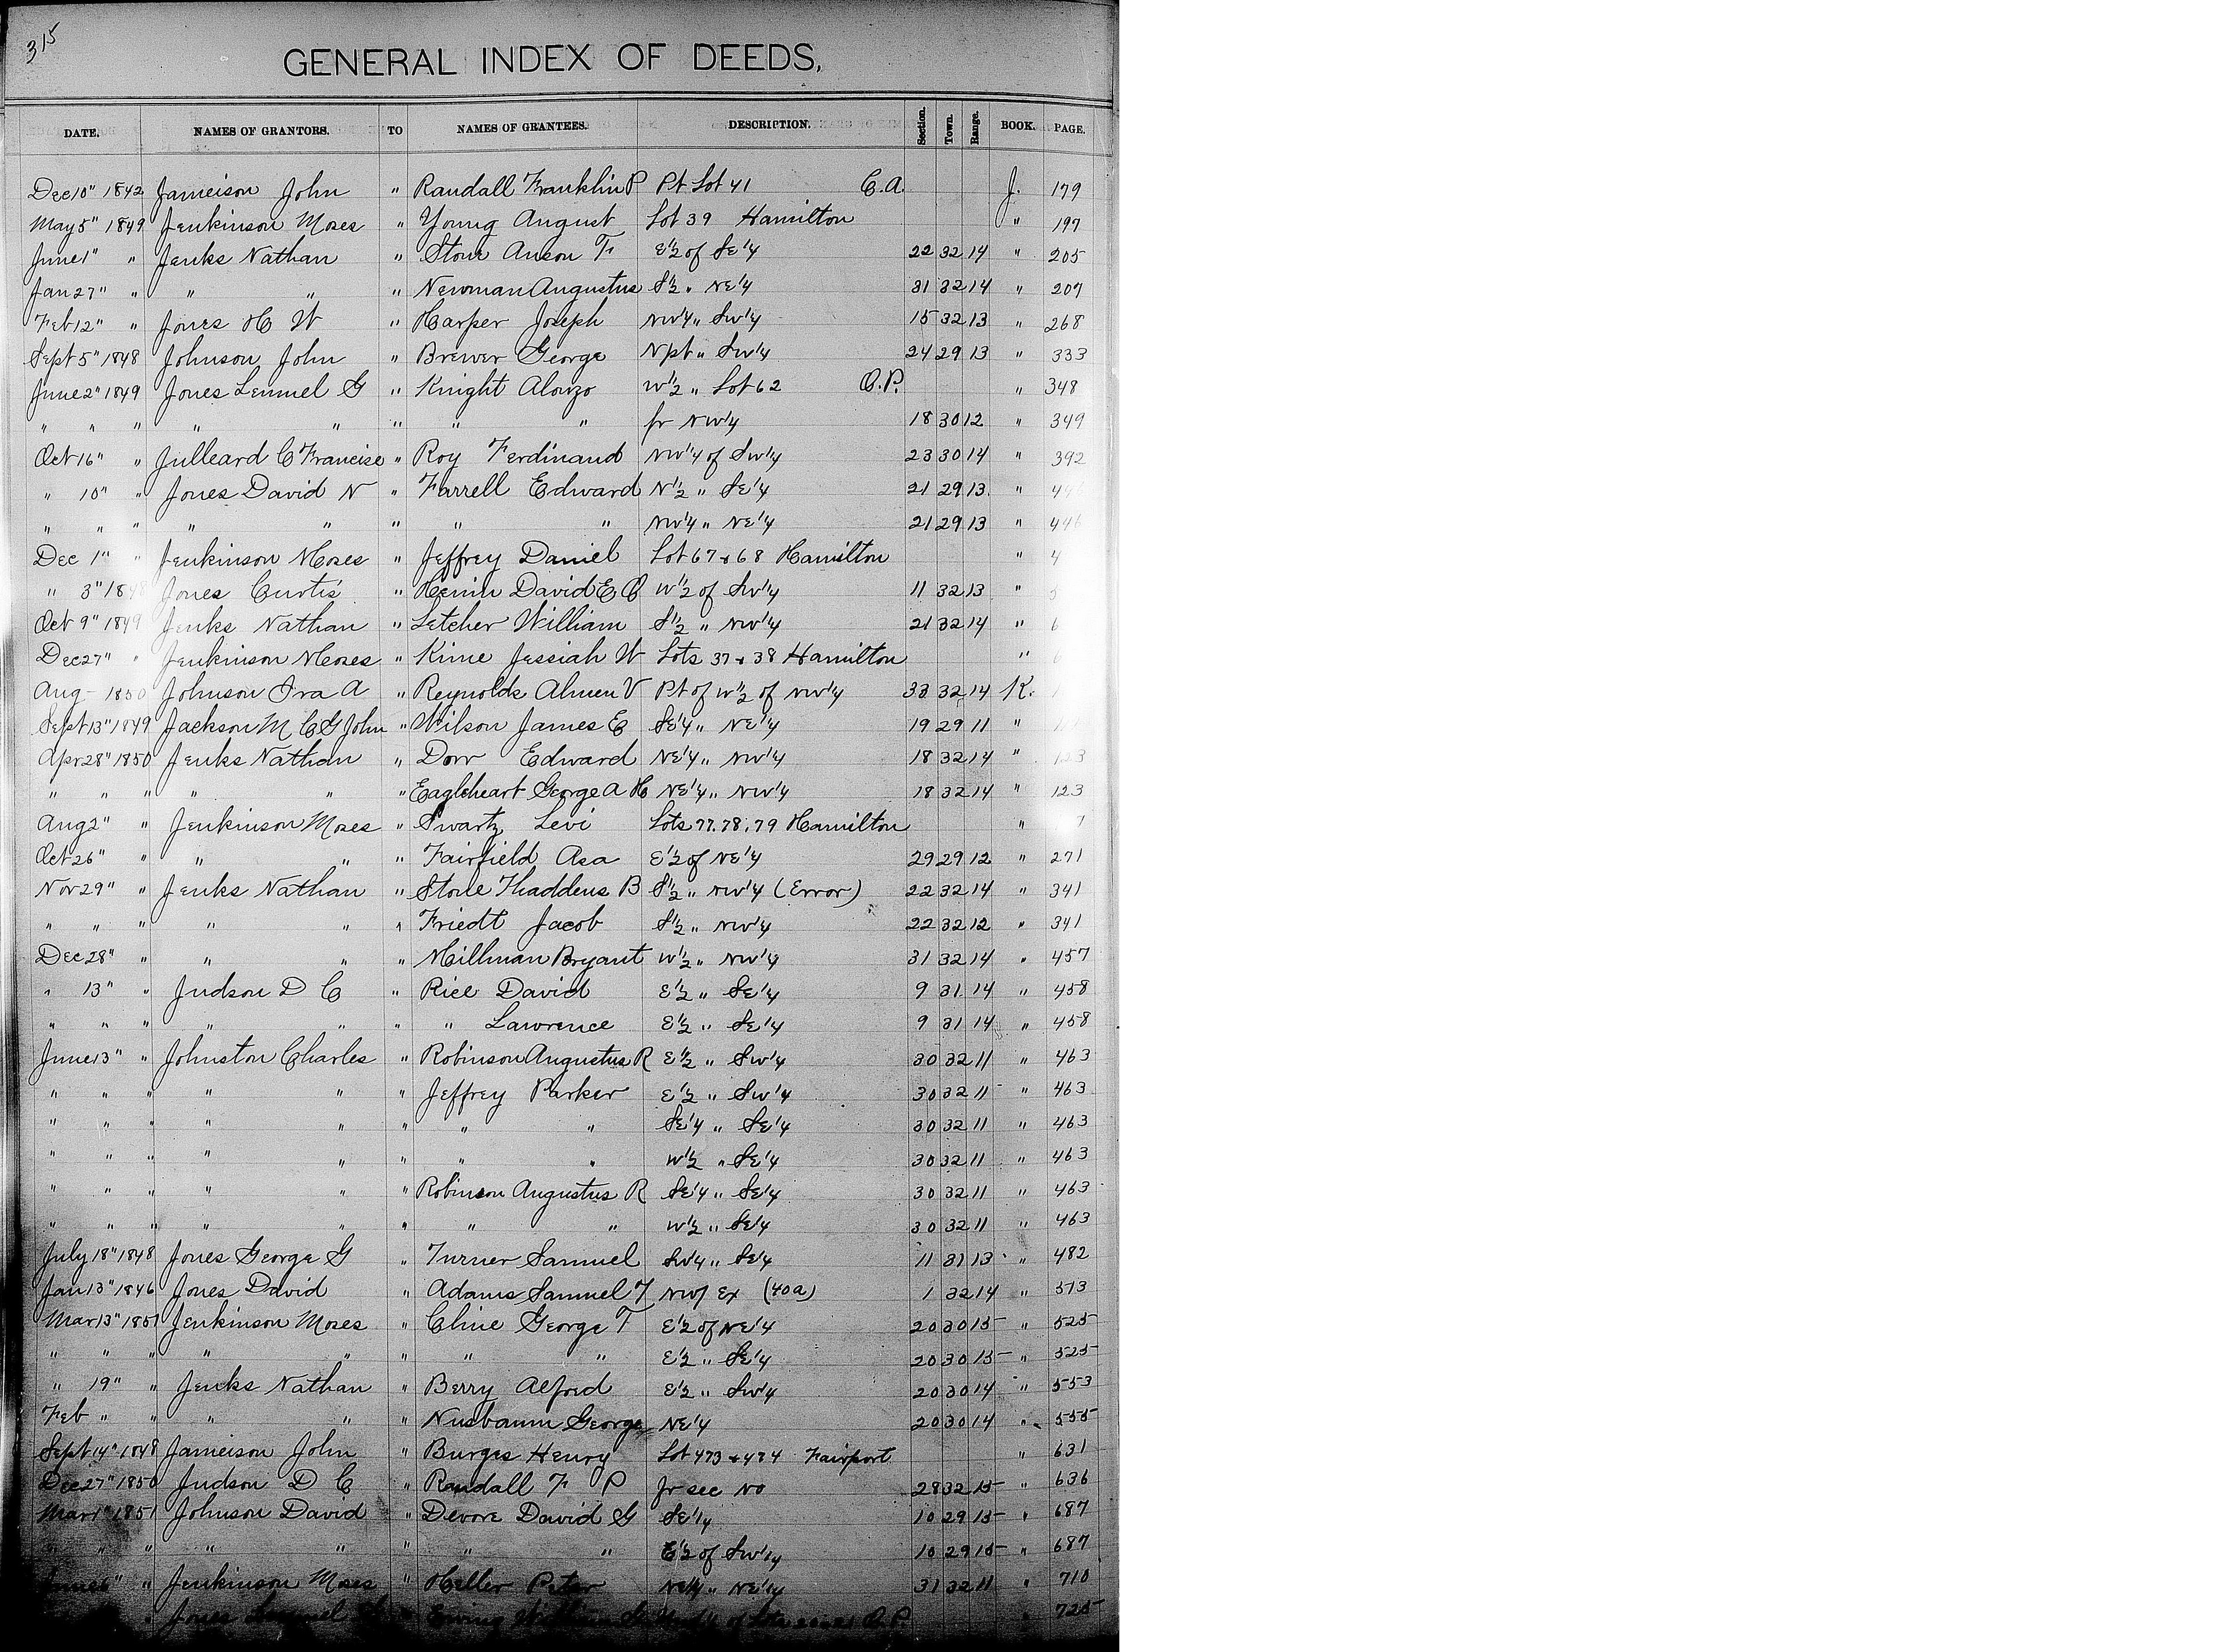 315
GENERAL INDEX OF DEEDS,
DATE. NAMES OF GRANTORS. TO NAMES OF GRANTEES. DESCRIPTION. Section. Town. Range. BOOK. PAGE.
Dec 10" 1842 Jameison John " Randall Franklin P Pt Lot 41 C.A. J. 179
May 5" 1849 Jenkinson Moses " Young August Lot 39 Hamilton " 197
June 1" " Jenks Nathan " Stone Anson F E½ of SE¼ 22 32 14 " 205
Jan 27" " " " " Newman Augustus S½ " NE¼ 31 32 14 " 207
Feb 12" " Jones H W " Harper Joseph NW¼ " SW¼ 15 32 13 " 268
Sept 5" 1848 Johnson John " Brewer George N pt " SW¼ 24 29 13 " 333
June 2" 1849 Jones Lemuel G " Knight Alonzo W½ " Lot 62 O.P. " 348
" " " " " " " " fr NW¼ 18 30 12 " 349
Oct 16" " Julleard C Francise " Roy Ferdinand NW¼ of SW¼ 23 30 14 " 392
" 10" " Jones David N " Farrell Edward N½ " SE¼ 21 29 13 "
" " " " " " " " NW¼ " NE¼ 21 29 13 " 446
Dec 1" " Jenkinson Moses " Jeffrey Daniel Lot 67 & 68 Hamilton "
" 3" Jones Curtis " David E C W½ of SW¼ 11 32 13 "
Oct 9" 1849 Jenks Nathan " Letcher William S½ " NW¼ 21 32 14 "
Dec 27" " Jenkinson Moses " Kime Jessiah W Lots 37 & 38 Hamilton "
Aug - 1850 Johnson Ira A " Reynolds Almen V Pt of W½ of NW¼ 33 32 14 K.
Sept 13" 1849 Jackson M C G John " Wilson James E SE¼ " NE¼ 19 29 11 "
Apr 28" 1850 Jenks Nathan " Dow Edward NE¼ " NW¼ 18 32 14 " 123
" " " " " " Eagleheart George A H NE¼ " NW¼ 18 32 14 " 123
Aug 2" " Jenkinson Moses " Swartz Levi Lots 77.78.79 Hamilton "
Oct 26" " " " " Fairfield Asa E½ of NE¼ 29 29 12 " 271
Nov 29" " Jenks Nathan " Stone Thaddeus B S½ " NW¼ (Error) 22 32 14 " 341
" " " " " " Friedt Jacob S½ " NW¼ 22 32 12 " 341
Dec 28" " " " " Millman Bryant W½ " NW¼ 31 32 14 " 457
" 13" " Judson D C " Rice David E½ " SE¼ 9 31 14 " 458
" " " " " " " Lawrence E½ " SE¼ 9 31 14 " 458
June 13" " Johnston Charles " Robinson Augustus R E½ " SW¼ 30 32 11 " 463
" " " " " " Jeffrey Parker E½ " SW¼ 30 32 11 " 463
" " " " " " " " SE¼ " SE¼ 30 32 11 " 463
" " " " " " " " W½ " SE¼ 30 32 11 " 463
" " " " " " Robinson Augustus R SE¼ " SE¼ 30 32 11 " 463
" " " " " " " " W½ " SE¼ 30 32 11 " 463
July 18" 1848 Jones George G " Turner Samuel SW¼ " SE¼ 11 31 13 " 482
Jan 13" 1846 Jones David " Adams Samuel T NW/ Ex (40a) 1 32 14 " 513
Mar 13" 1851 Jenkinson Moses " Cline George T E½ of NE¼ 20 30 15 " 525
" " " " " " " " E½ " SE¼ 20 30 15 " 525
" 19" " Jenks Nathan " Berry Alfred E½ " SW¼ 20 30 14 " 553
Feb " " " " " Nusbaum George NE¼ 20 30 14 " 555
Sept 14" 1848 Jameison John " Burges Henry Lot 473 & 474 Fairport " 631
Dec 27" 1850 Judson D C " Randall F P fr sec No 28 32 15 " 636
Mar 1" 1851 Johnson David " Devore David G SE¼ 10 29 15 " 687
" " " " " " " " E½ of SW¼ 10 29 15 " 687
" Jenkinson Moses " Heller Peter NE¼ " NE¼ 31 32 11 " 710
" Jones Lemuel " Ewing William of Lots O.P. " 725